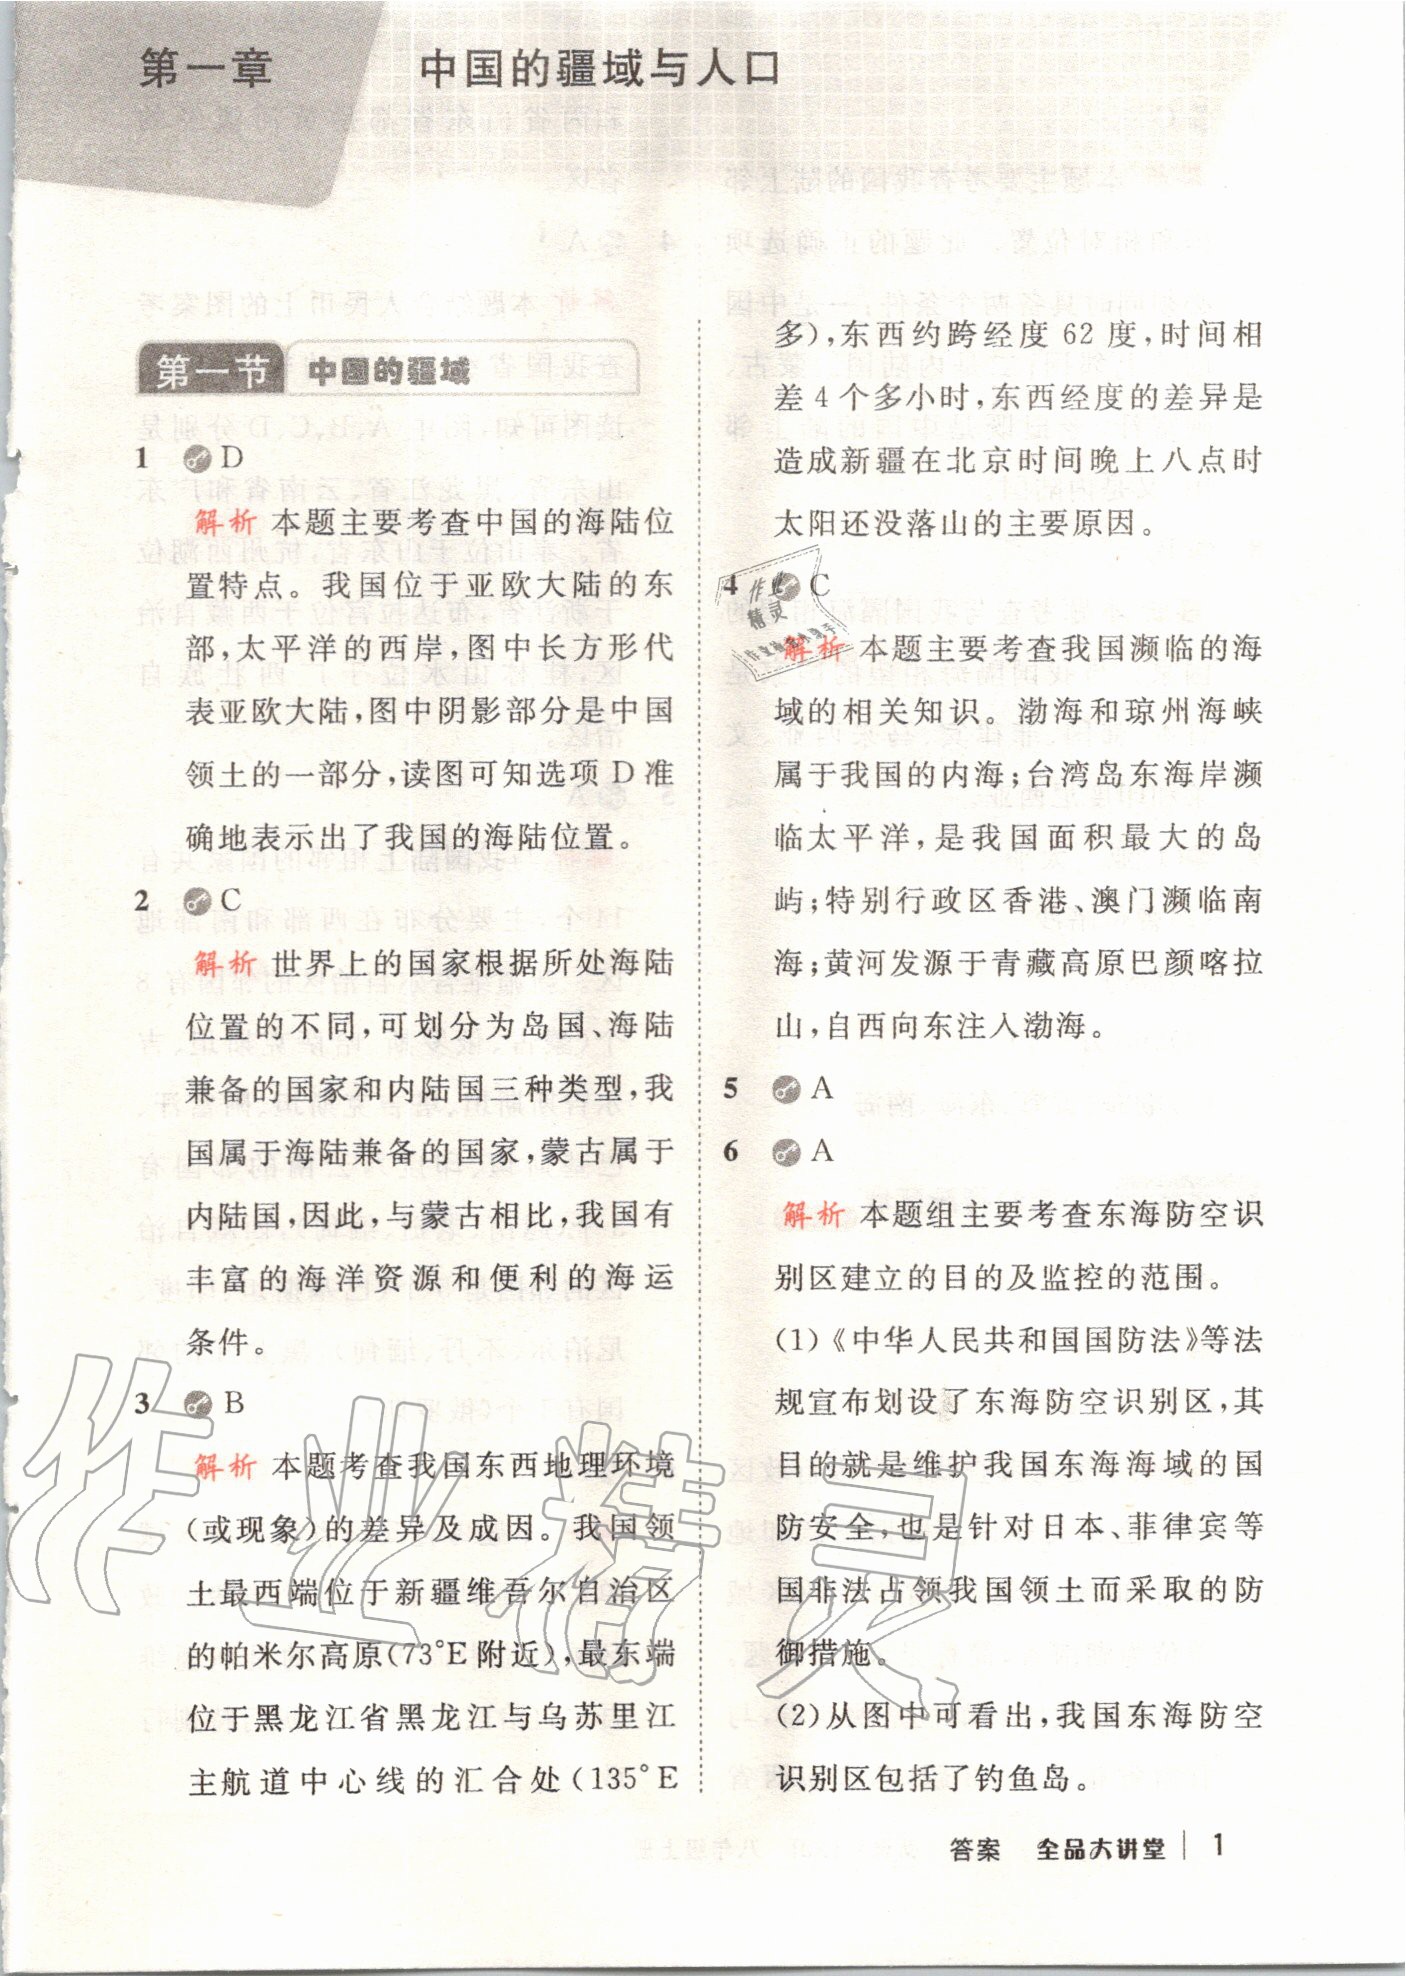 第一章 中国的疆域与人口
第一节 中国的疆域
1 D
解析 本题主要考查中国的海陆位
置特点。我国位于亚欧大陆的东
部,太平洋的西岸,图中长方形代
表亚欧大陆,图中阴影部分是中国
领土的一部分,读图可知选项D准
确地表示出了我国的海陆位置。
2 C
解析 世界上的国家根据所处海陆
位置的不同,可划分为岛国、海陆
兼备的国家和内陆国三种类型,我
国属于海陆兼备的国家,蒙古属于
内陆国,因此,与蒙古相比,我国有
丰富的海洋资源和便利的海运
条件。
3 B
解析 本题考查我国东西地理环境
(或现象)的差异及成因。我国领
土最西端位于新疆维吾尔自治区
的帕米尔高原(73°E附近),最东端
位于黑龙江省黑龙江与乌苏里江
主航道中心线的汇合处(135°E
多),东西约跨经度62度,时间相
差4个多小时,东西经度的差异是
造成新疆在北京时间晚上八点时
太阳还没落山的主要原因。
4 C
解析 本题主要考查我国濒临的海
域的相关知识。渤海和琼州海峡
属于我国的内海;台湾岛东海岸濒
临太平洋,是我国面积最大的岛
屿;特别行政区香港、澳门濒临南
海;黄河发源于青藏高原巴颜喀拉
山,自西向东注入渤海。
5 A
6 A
解析 本题组主要考查东海防空识
别区建立的目的及监控的范围。
(1)《中华人民共和国国防法》等法
规宣布划设了东海防空识别区,其
目的就是维护我国东海海域的国
防安全,也是针对日本、菲律宾等
国非法占领我国领土而采取的防
御措施。
(2)从图中可看出,我国东海防空
识别区包括了钓鱼岛。
作业精灵
作业
精灵
答案 全品大讲堂 1